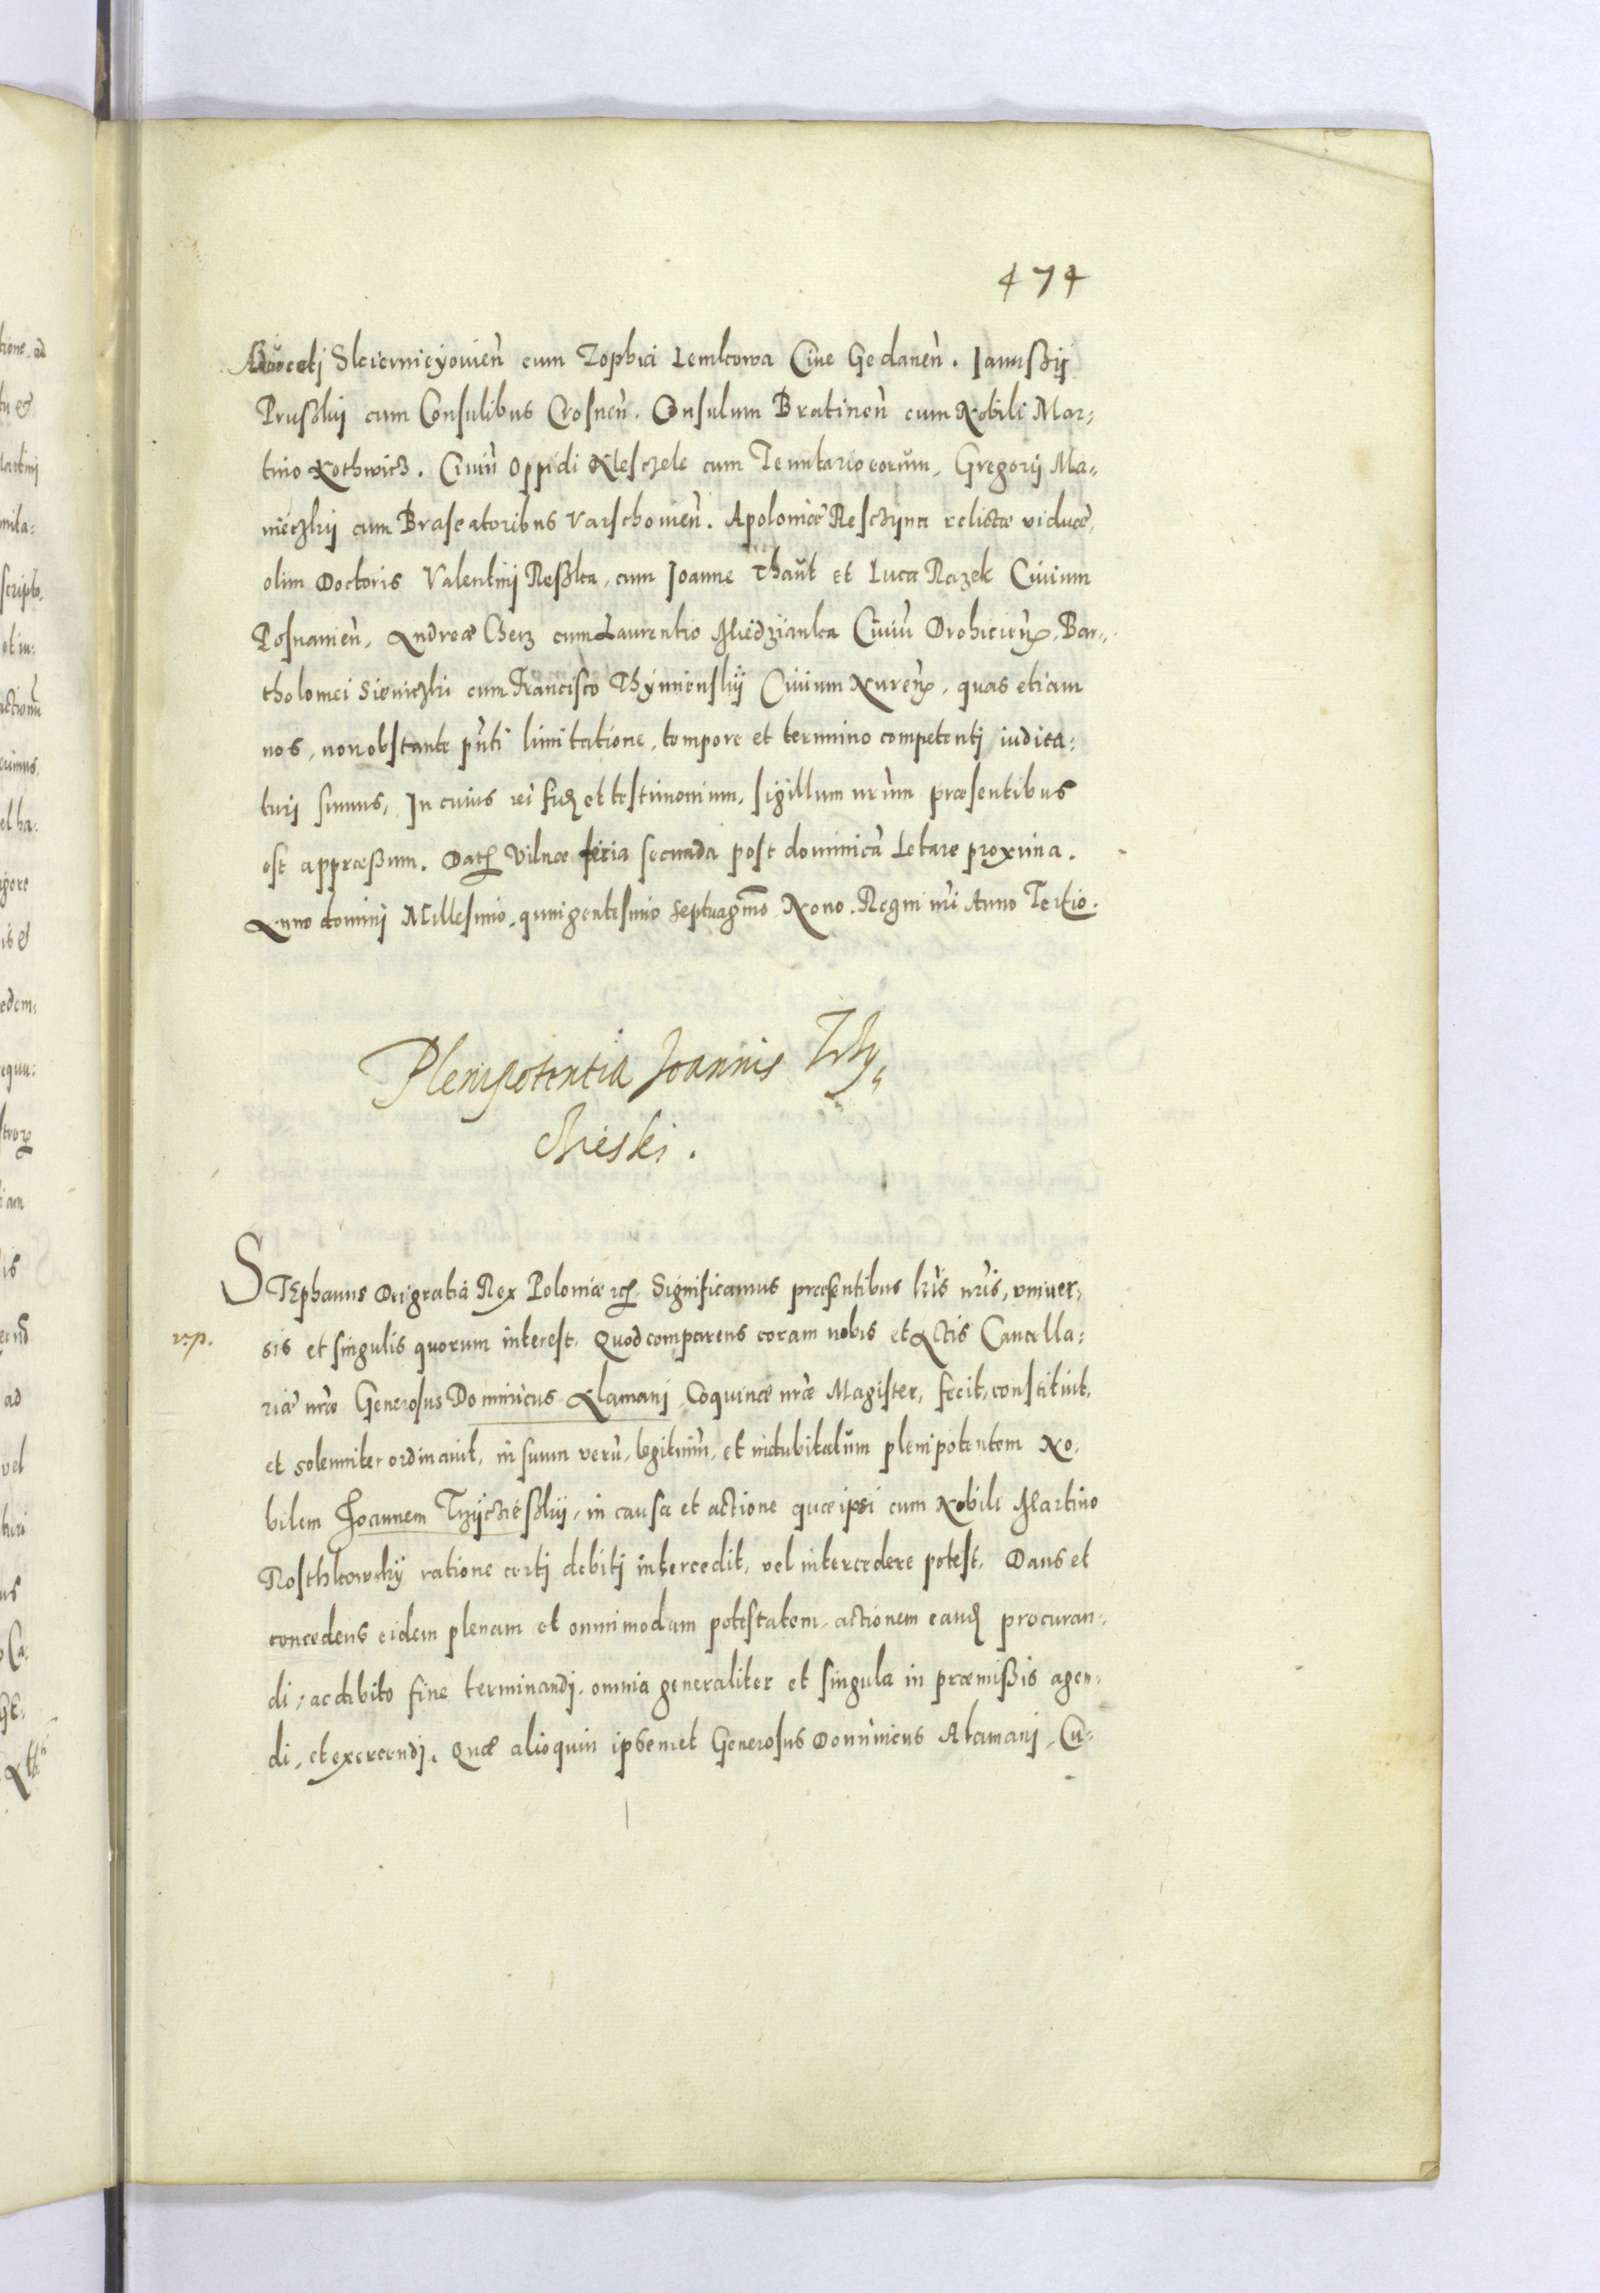 474
Aduocati Skiernieÿouien̄ cum Zophia Lemkowa Ciue Gedanen̄. Ianuszÿ
Pruszkij cum Consulibus Crosnen̄. Consulum Bratinen̄ cum Nobili Mar=
tino Nothwicz. Ciuiū oppidi Klesczele cum Tenutario eorum, Gregorij Ma=
nieczkij cum Braseatoribus Varschouien̄. Apoloniæ Resczyna relictæ viduæ,
olim Doctoris Valentinij Reszka, cum Joanne Thaut et Luca Razek Ciuium
Posnanien̄, Andreæ Cherz cum Laurentio Miedzianka Ciuiū Drohicien̄, Bar=
tholomei Sieniczki cum Francisco Thÿmienskÿ Ciuium Nuren̄, quas etiam
nos, non obstante pn̄ti limitatione, tempore et termino competenti iudica=
turi sumus, In cuius rei fid̃ et testimonium, sigillum nr̄um præsentibus
est appræssum. Dat̃ Vilnæ feria secunda post dominicā Letare proxima.
Anno domini Millesimo, quingentesimo septuagm̄o Nono. Regni nr̄i Anno Tertio.
Plenipotentia Joannis Trzy,
chieski.
STEphanus Dei gratia Rex Poloniæ etc̃ Significamus præsentibus lr̄is nr̄is, vniuer=
r.p.
sis et singulis quorum interest. Quod comparens coram nobis et Actis Cancella=
riæ nr̄æ Generosus Dominicus Alamanj Coquinæ nr̄æ Magister, fecit, constituit,
et solenniter ordinauit, in suum verū, legitimū, et indubitatum plenipotentem No=
bilem Joannem Trzÿcziészkij, in causa et actione quæ ipsi cum Nobili Martino
Rosthkowskÿ ratione certj debitj intercedit, vel intercedere potest, Dans et
concedens eidem plenam et omnimodam potestatem, actionem eand̃ procuran=
di, ac debito fine terminandj, omnia generaliter et singula in præmissis agen=
di, et exercendj. Quæ alioquin ipsemet Generosus Dominicus Alamanj, Cu=